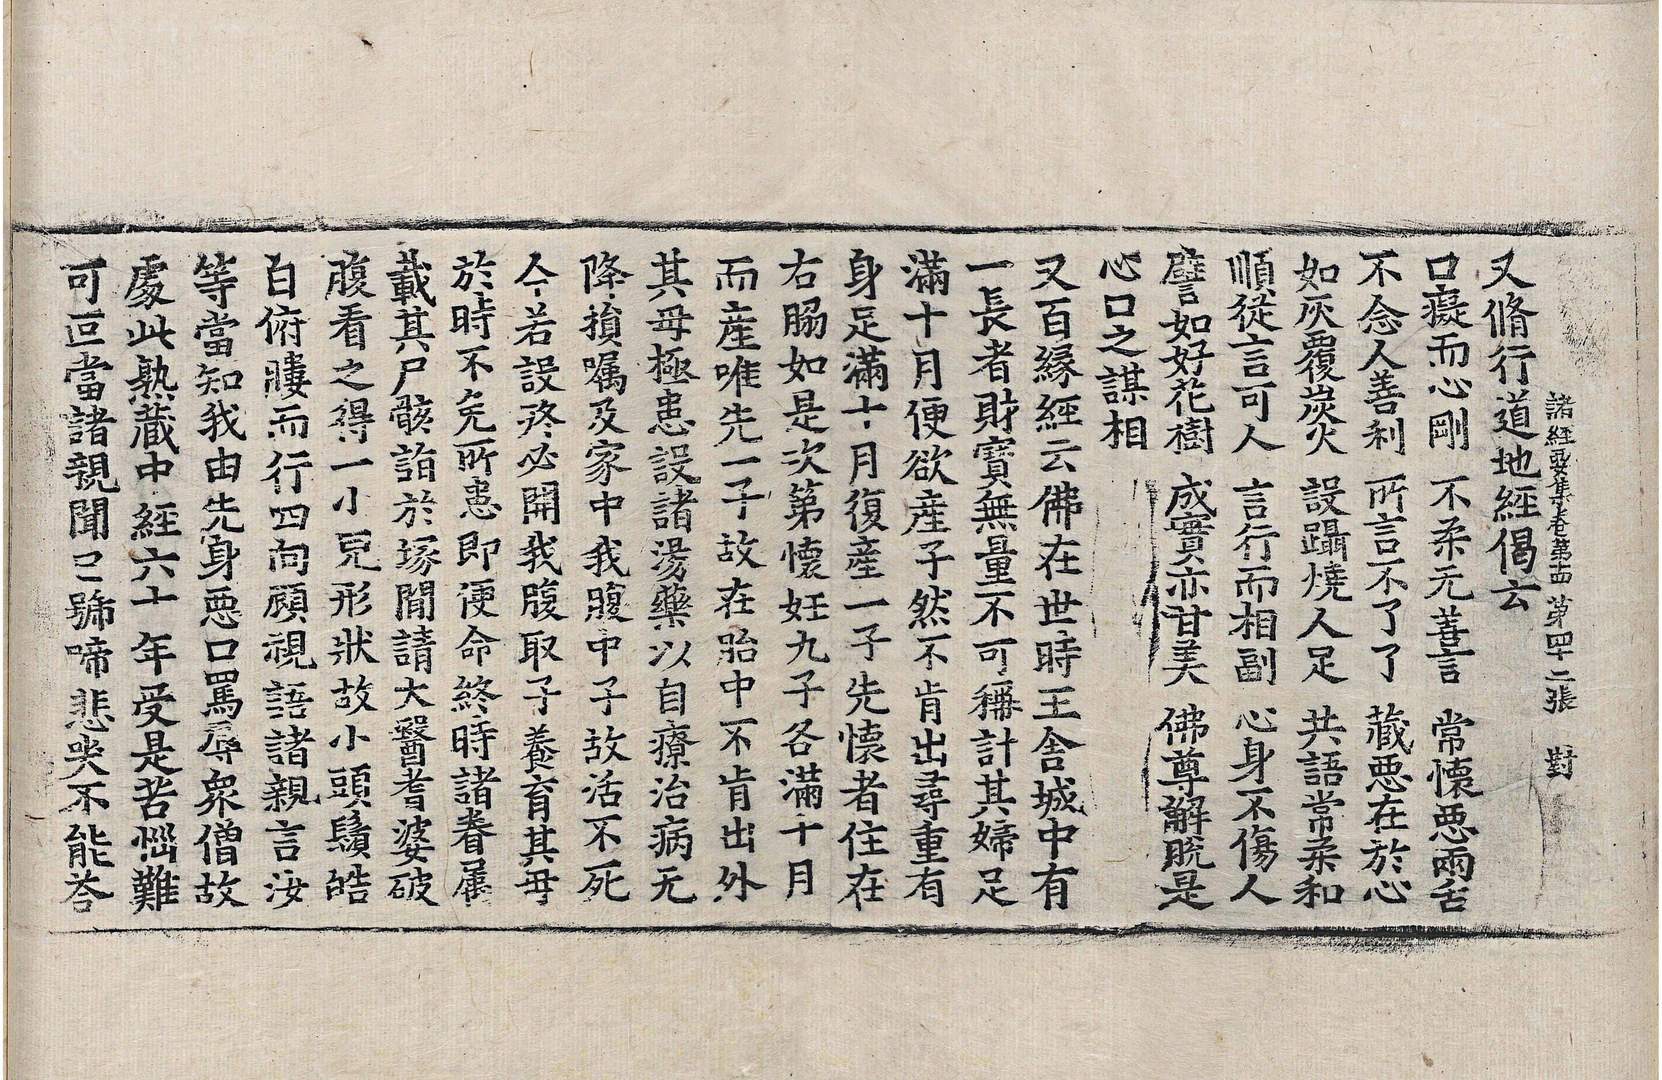 諸經要集卷第十四 第四十二張 對
又脩行道地經偈云
口癡而心剛 不柔无善言 常懷惡兩舌
不念人善利 所言不了了 藏惡在於心
如灰覆炭火 設躡燒人足 共語常柔和
順從言可人 言行而相副 心身不傷人
譬如好花樹 成實亦甘美 佛尊解脫是
心口之謀相
又百縁經云佛在世時王舍城中有
一長者財寶無量不可稱計其婦足
滿十月便欲産子然不肯出尋重有
身足滿十月復産一子先懷者住在
右脇如是次第懷妊九子各滿十月
而産唯先一子故在胎中不肯出外
其母極患設諸湯藥以自療治病无
降損嘱及家中我腹中子故活不死
今若設終必開我腹取子養育其母
於時不免所患即便命終時諸眷屬
載其尸骸詣於塚間請大醫耆婆破
腹看之得一小兒形狀故小頭鬚皓
白俯僂而行四向顧視語諸親言汝
等當知我由先身惡口罵辱衆僧故
處此熟藏中經六十年受是苦惱難
可叵當諸親聞已號啼悲哭不能荅